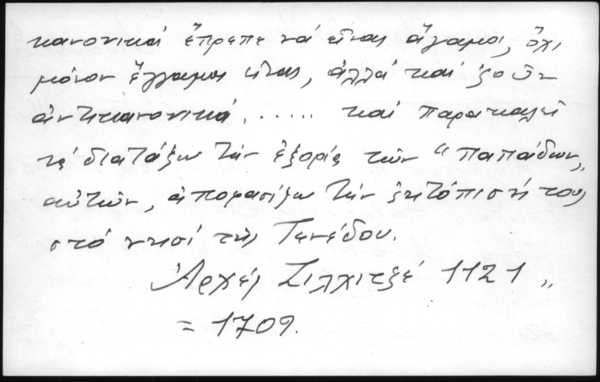 κανονικά ἔπρεπε νά εἶναι ἄγαμοι, ὄχι
μόνον ἔγγαμοι εἶναι, ἀλλά καί ζοῦν
ἀντικανονικά, ..... καί παρακαλεῖ
νά διατάξω τήν ἐξορία τῶν "παπάδων„
αὐτῶν, ἀποφασίζω τήν ἐκτόπισή τους
στό νησί τῆς Τενέδου.
Ἀρχές Ζιλχιτζέ 1121 „
= 1709.